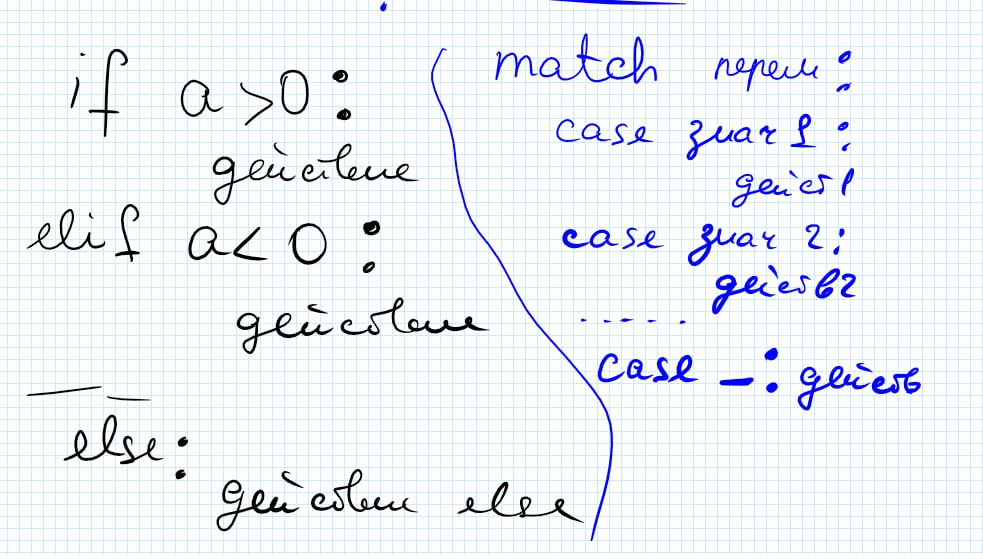 if a>0:
действие
elif a<0:
действие
else:
действие else
match перем:
case знач1:
дейст1
case знач 2:
действ2
.....
case _: действ